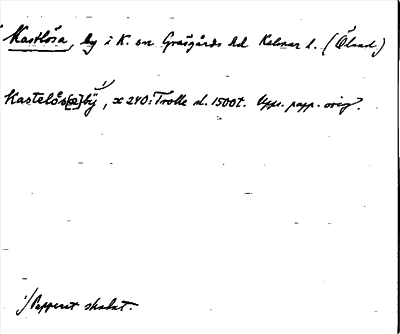 Kastlösa, by i K. sn Gräsgårds hd Kalmar l. (Öland)
Kastelös[e]by 1/, x 240: Trolle d. 1500t. Upps. papp. orig.
1/ Papperet skadat.